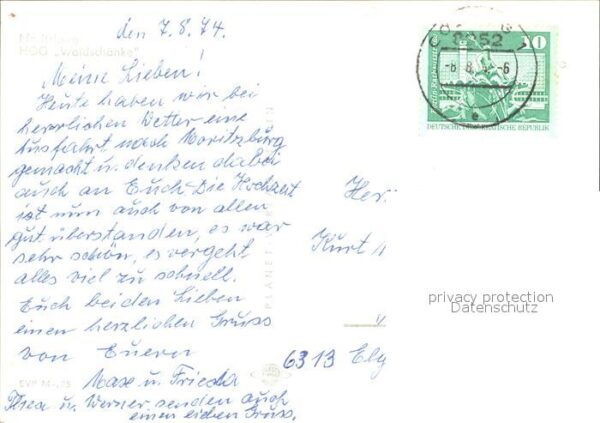 den 7.8.74.
Moritzburg
HOG „Waldschänke"
Meine Lieben!
Heute haben wir bei
herrlichen Wetter eine
Ausfahrt nach Moritzburg
gemacht u. denken dabei
auch an Euch. Die Hochzeit
ist nun auch von allen
gut überstanden, es war
sehr schön, es vergeht
alles viel zu schnell.
Euch beiden Lieben
einen herzlichen Gruss
von Euern
Max u. Frieda
Thea u. Werner senden auch
einen lieben Gruss.
PLANET
EVP M -,25
Her
Kurt
6313 Elg
8252
-8.8.
-6
e
10
DEUTSCHE DEMOKRATISCHE REPUBLIK
privacy protection
Datenschutz